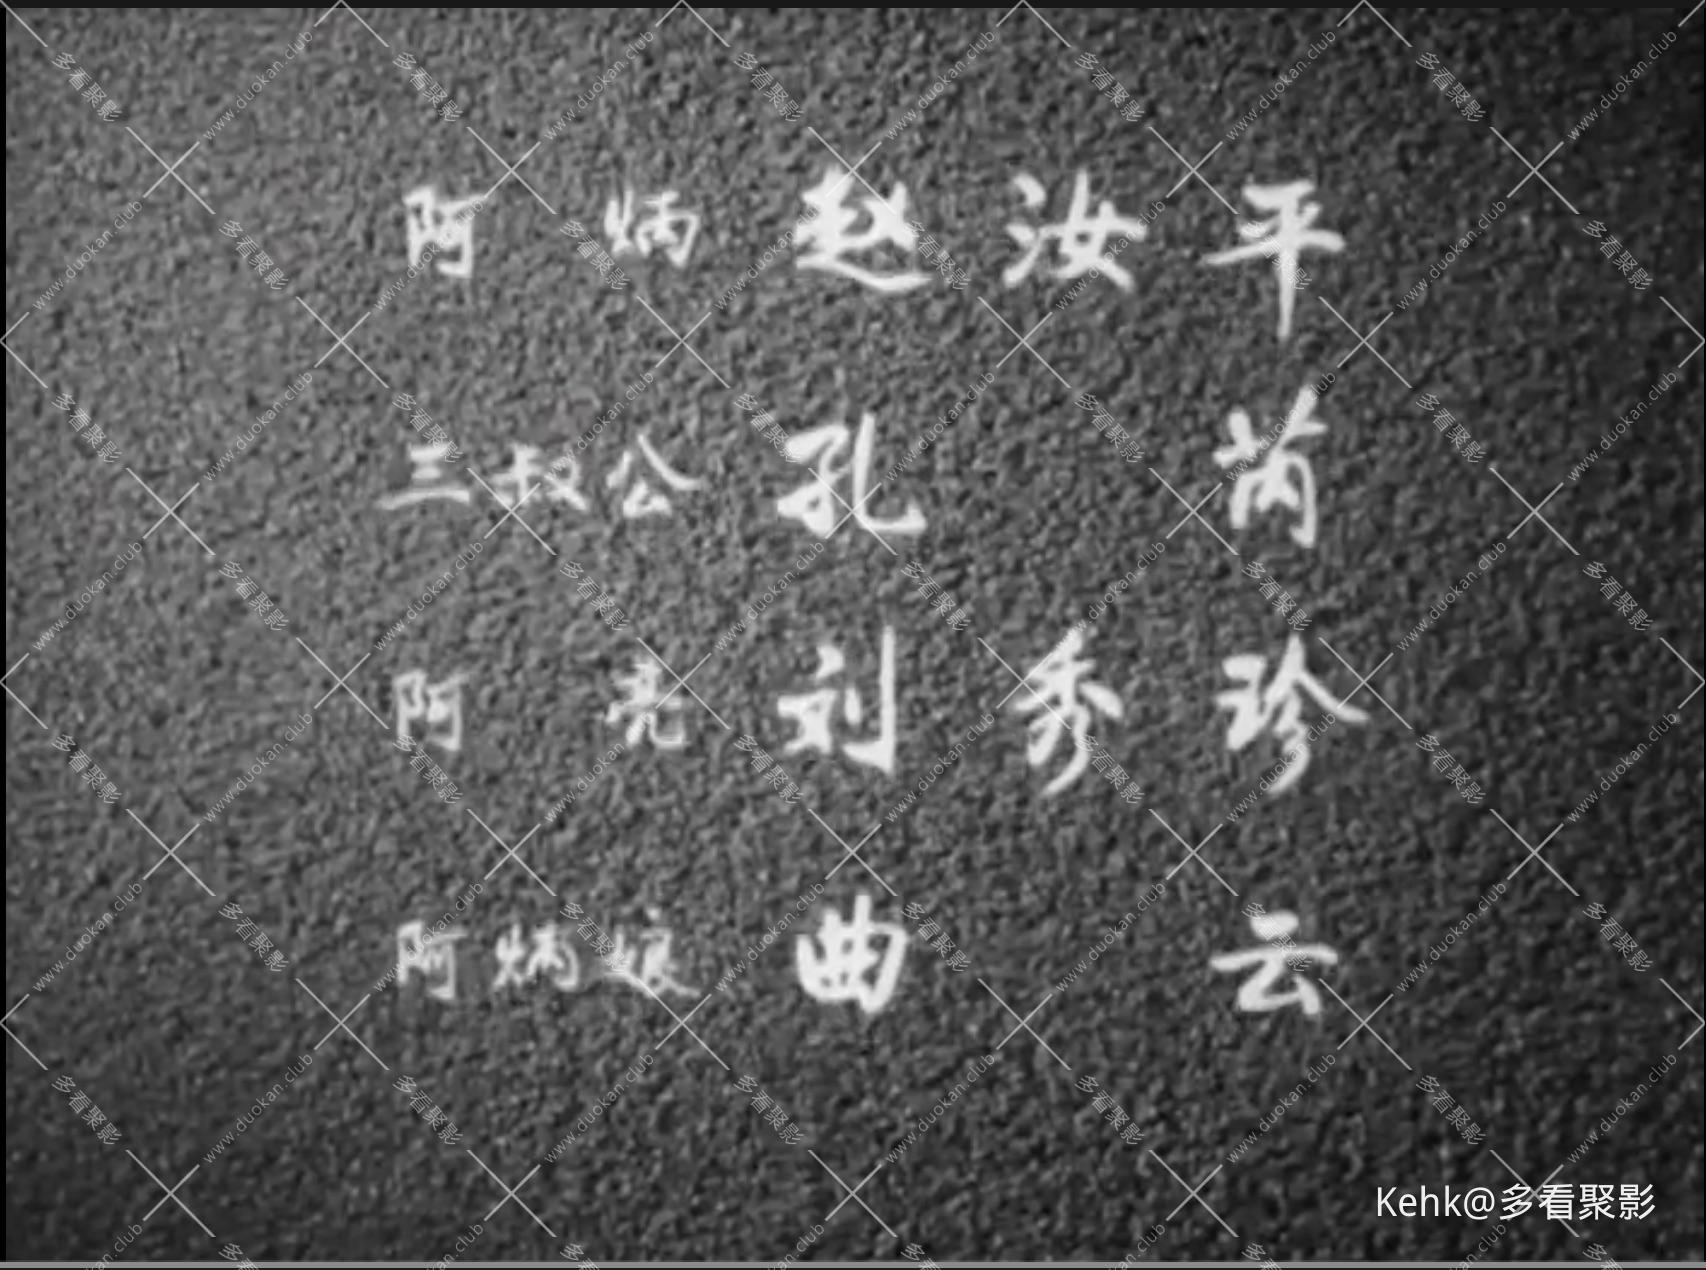 阿 炳 赵 汝 平
三叔公 孔 芮
阿 亮 刘 秀 珍
阿炳娘 曲 云
Kehk@多看聚影
多看聚影
www.duokan.club